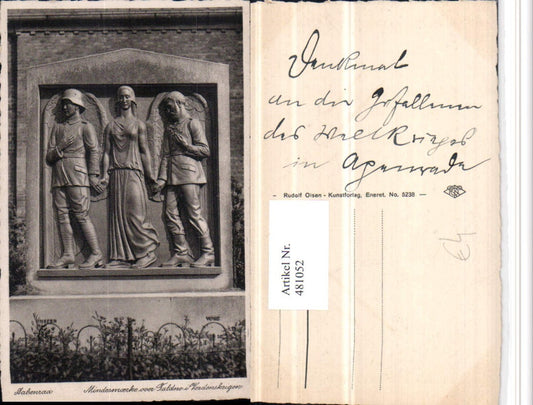 Aabenraa
Mindesmærke over Faldne i Verdenskrigen
Denkmal
an die Gefallenen
des Weltkrieges
in Apenrade
- Rudolf Olsen - Kunstforlag, Eneret. No. 5238 -
Artikel Nr.
481052